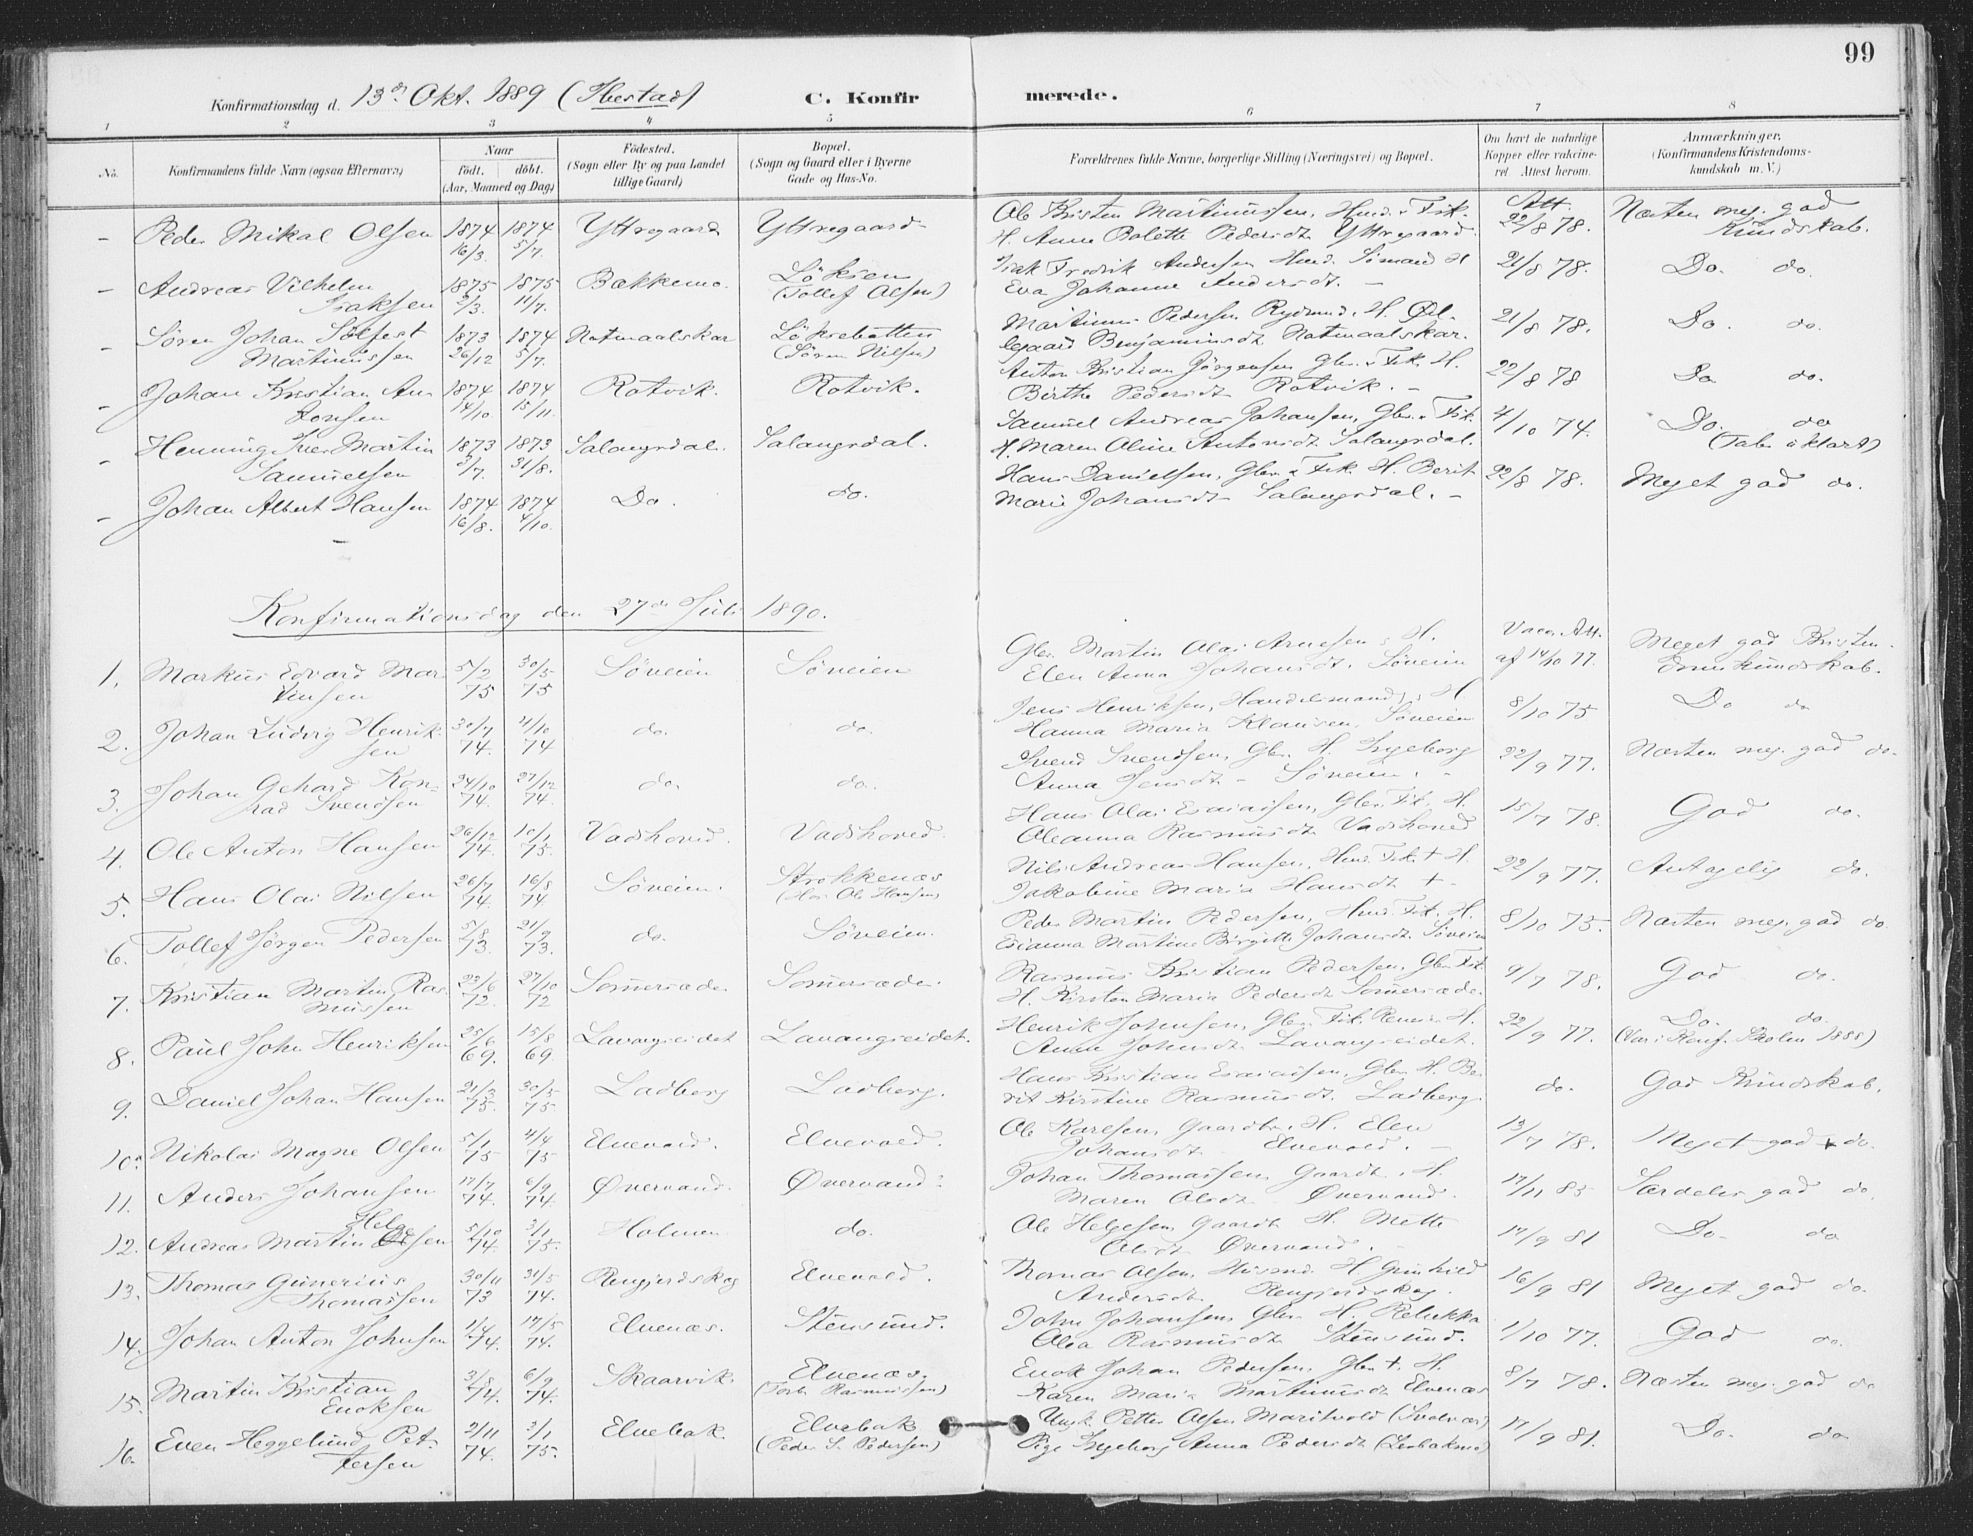 99
Konfirmationsdag d. 13de Okt. 1889 (Ibestad) C. Konfirmerede.
1 2 3 4 5 6 7 8
No. Konfirmandens fulde Navn (ogsaa Efternavn) Naar födt. döbt. (Aar, Maaned og Dag) Födested. (Sogn eller By og paa Landet tillige Gaard) Bopæl. (Sogn og Gaard eller i Byerne Gade og Hus-No. Forældrenes fulde Navne, borgerlige Stilling (Næringsvei) og Bopæl. Om havt de naturlige Kopper eller vakcineret. Attest herom. Anmærkninger. (Konfirmandens Kristendomskundskab m. V.)
- Peder Mikal Olsen 1874 16/3. 1874 5/7. Yttregaard Yttregaard Ole Kristen Martinussen, Husm. & Fisk. Att. 22/8 78. Næsten meg. god
H. Anne Bolette Pedersdt. Yttregaard Kundskab.
- Andreas Vilhelm Isaksen 1875 2/3. 1875 11/7. Bakkemo. Löksen (Tollef Olsen) Isak Fredrik Andersen H. 21/8 78. Do. do.
Eva Johanne Andersdt. -
- Sören Johan Solfest Martinussen 1873 26/12 1874 5/7. Notmaalskar Löksebotten (Sören Nilsen) Martinus Pedersen H. 21/8 78. Do. do.
Benjaminsdt. Notmaalskar.
- Johan Kristian Antonsen 1874 14/10 1874 15/11. Rotvik. Rotvik. Anton Kristian Jörgensen Gbr. & Fisk. H. 22/8 78 Do do.
Birthe Pedersdt. Rotvik. -
- Henning Iver Martin Samuelsen 1873 2/7. 1873 31/8. Salangsdal. Salangsdal. Samuel Andreas Johansen, Gbr. & Fisk. 4/10 74. Do. do
H. Maren Oline Antonsdt. Salangsdal. (Tabe uklart)
- Johan Albert Hansen 1874 16/8. 1874 4/10. Do. do. Hans Danielsen, Gbr. & Fisk. H. Berit 22/8 78. Meget god do.
Marie Johansdt. Salangsdal. -
Konfirmationsdag den 27de Juli 1890.
1. Markus Edvard Martensen 5/2 75 30/5 75 Söveien Söveien Gbr. Martin Olai Arnesen, H. Vacc. Att. af 14/10 77. Meget god Kristendomskundskab.
Elen Anna Johansdt. Söveien
2. Johan Ludvig Henriksen 30/7 74. 4/10 74 do. do. Jens Henriksen, Handelsmand, H 8/10 75 Do do
Hanna Maria Klausen, Söveien
3. Johan Gehard Konrad Svendsen 24/10 74. 27/12 74. do. do. Svend Svendsen, Gbr. H. Ingeborg 22/9 77. Næsten meg. god do.
Anna Jensdt. - Söveien. -
4. Ole Anton Hansen 26/12 74. 10/1 75. Vadshoved. Vadshoved. Hans Olai Esaiassen, Gbr. Fisk. H. 15/7 78. God do.
Oleanna Rasmusdt. Vadshoved
5. Hans Olai Nilsen 26/7 74. 16/8 74 Söveien. Strokkenæs (Hos Ole Hansen) Nils Andreas Hansen, Husm. Fisk. + H. 22/9 77. Antagelig do.
Jakobine Maria Hansdt. +
6. Tollef Jörgen Pedersen 5/8 73. 21/9 73. do. Söveien. Peder Martin Pedersen, Husm. Fisk. H. 8/10 75. Næsten meg. god do.
Esianna Martine Birgitte Johansdt. Söveien
7. Kristian Martin Rasmussen 22/6 72. 27/10 72 Somersæde. Somersæde. Rasmus Kristian Pedersen, Gbr. Fisk. 9/7 78. God do.
H. Kirsten Maria Pedersdt. Somersæde.
8. Paul John Henriksen 25/6 69. 15/8 69 Lavangseidet Lavangseidet. Henrik Johnsen, Gbr. Fisk. H. 22/9 77. Do. do.
Anne Johnsdt. Lavangseidet. (Var i Konf. Skolen 1888)
9. Daniel Johan Hansen 21/3 75. 30/5 75 Ladberg Ladberg. Hans Kristian Esaiassen, Gbr. H. Berit do. God Kundskab.
Kirstine Rasmusdt. Ladberg
10. Nikolai Magne Olsen 5/1 75 4/4 75 Elvevold. Elvevold. Ole Karlsen, Gaardb. H. Elen 13/7 78. Meget god do.
Johansdt. Elvevold. -
11. Anders Johansen 17/7 74. 6/9 74. Övervand. Övervand. Johan Thomassen, Gaardb. H. 17/11 85 Særdeles god do.
Maren Olsdt. Övervand.
12. Andreas Martin Helgesen 5/10 74. 3/1 75. Holmen do. Ole Helgesen, Gaardb. H. Mette 17/9 81 Do. do
Olsdt. Övervand. -
13. Thomas Gunerius Thomassen 30/11 73 31/5 74. Rengjerdskog Elvevold. Thomas Olsen, Husmd. H. Gunhild 16/9 81 Meget god do.
Andersdt. Rengjerdskog.
14. Johan Anton Johnsen 1/4 74. 17/5 74. Elvenæs. Stensund. John Johansen, Gbr. H. Rebekka 1/10 77. God do.
Olea Rasmusdt. Stensund.
15. Martin Kristian Enoksen 3/8 74. 6/9 74. Skaarvik. Elvenæs. (Tosb. Rasmussen) Enok Johan Pedersen, Gbr. +. H. 8/7 78. Næsten meg. god do
Karen Maria Martinusdt. Elvenæs
16. Even Heggelund Pettersen 2/11 74. 3/1 75. Elvebak. Elvebak (Peder S. Pedersen) Ungk. Petter Olsen Maritvold (Svolvær) 17/9 81. Do. do
Pige Ingeborg Anna Pedersdt.